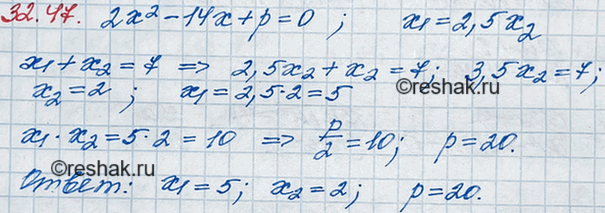 32.47. 2x² - 14x + p = 0 ; x1 = 2,5x2
x1 + x2 = 7 => 2,5x2 + x2 = 7; 3,5x2 = 7;
x2 = 2 ; x1 = 2,5·2 = 5
©reshak.ru
x1 · x2 = 5·2 = 10 => p/2 = 10; p = 20.
©reshak.ru
Ответ: x1 = 5; x2 = 2; p = 20.